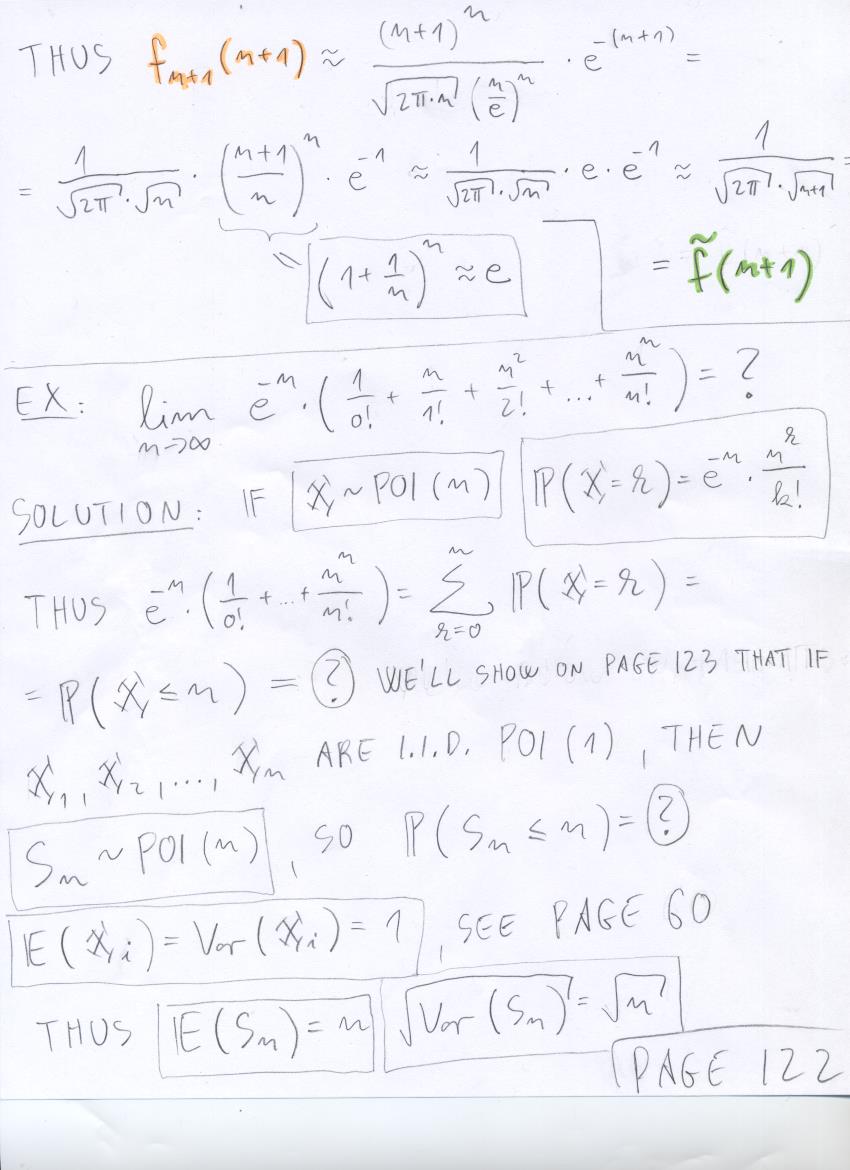 THUS f_{n+1}(n+1) ≈ \frac{(n+1)^n}{\sqrt{2π·n} (\frac{n}{e})^n} · e^{-(n+1)} =
= \frac{1}{\sqrt{2π}·\sqrt{n}} · (\frac{n+1}{n})^n · e^{-1} ≈ \frac{1}{\sqrt{2π}·\sqrt{n}} · e · e^{-1} ≈ \frac{1}{\sqrt{2π}·\sqrt{n+1}} =
= (1+\frac{1}{n})^n ≈ e
= \tilde{f}(n+1)
EX: lim_{n→∞} e^{-n} · (\frac{1}{0!} + \frac{n}{1!} + \frac{n^2}{2!} + ... + \frac{n^n}{n!}) = ?
SOLUTION: IF X ~ POI(n) P(X=k) = e^{-n} · \frac{n^k}{k!}
THUS e^{-n} · (\frac{1}{0!} + ... + \frac{n^n}{n!}) = \sum_{k=0}^{n} P(X=k) =
= P(X ≤ n) = ? WE'LL SHOW ON PAGE 123 THAT IF
X_1, X_2, ..., X_n ARE I.I.D. POI(1), THEN
S_n ~ POI(n), SO P(S_n ≤ n) = ?
E(X_i) = Var(X_i) = 1, SEE PAGE 60
THUS E(S_n) = n \sqrt{Var(S_n)} = \sqrt{n}
PAGE 122